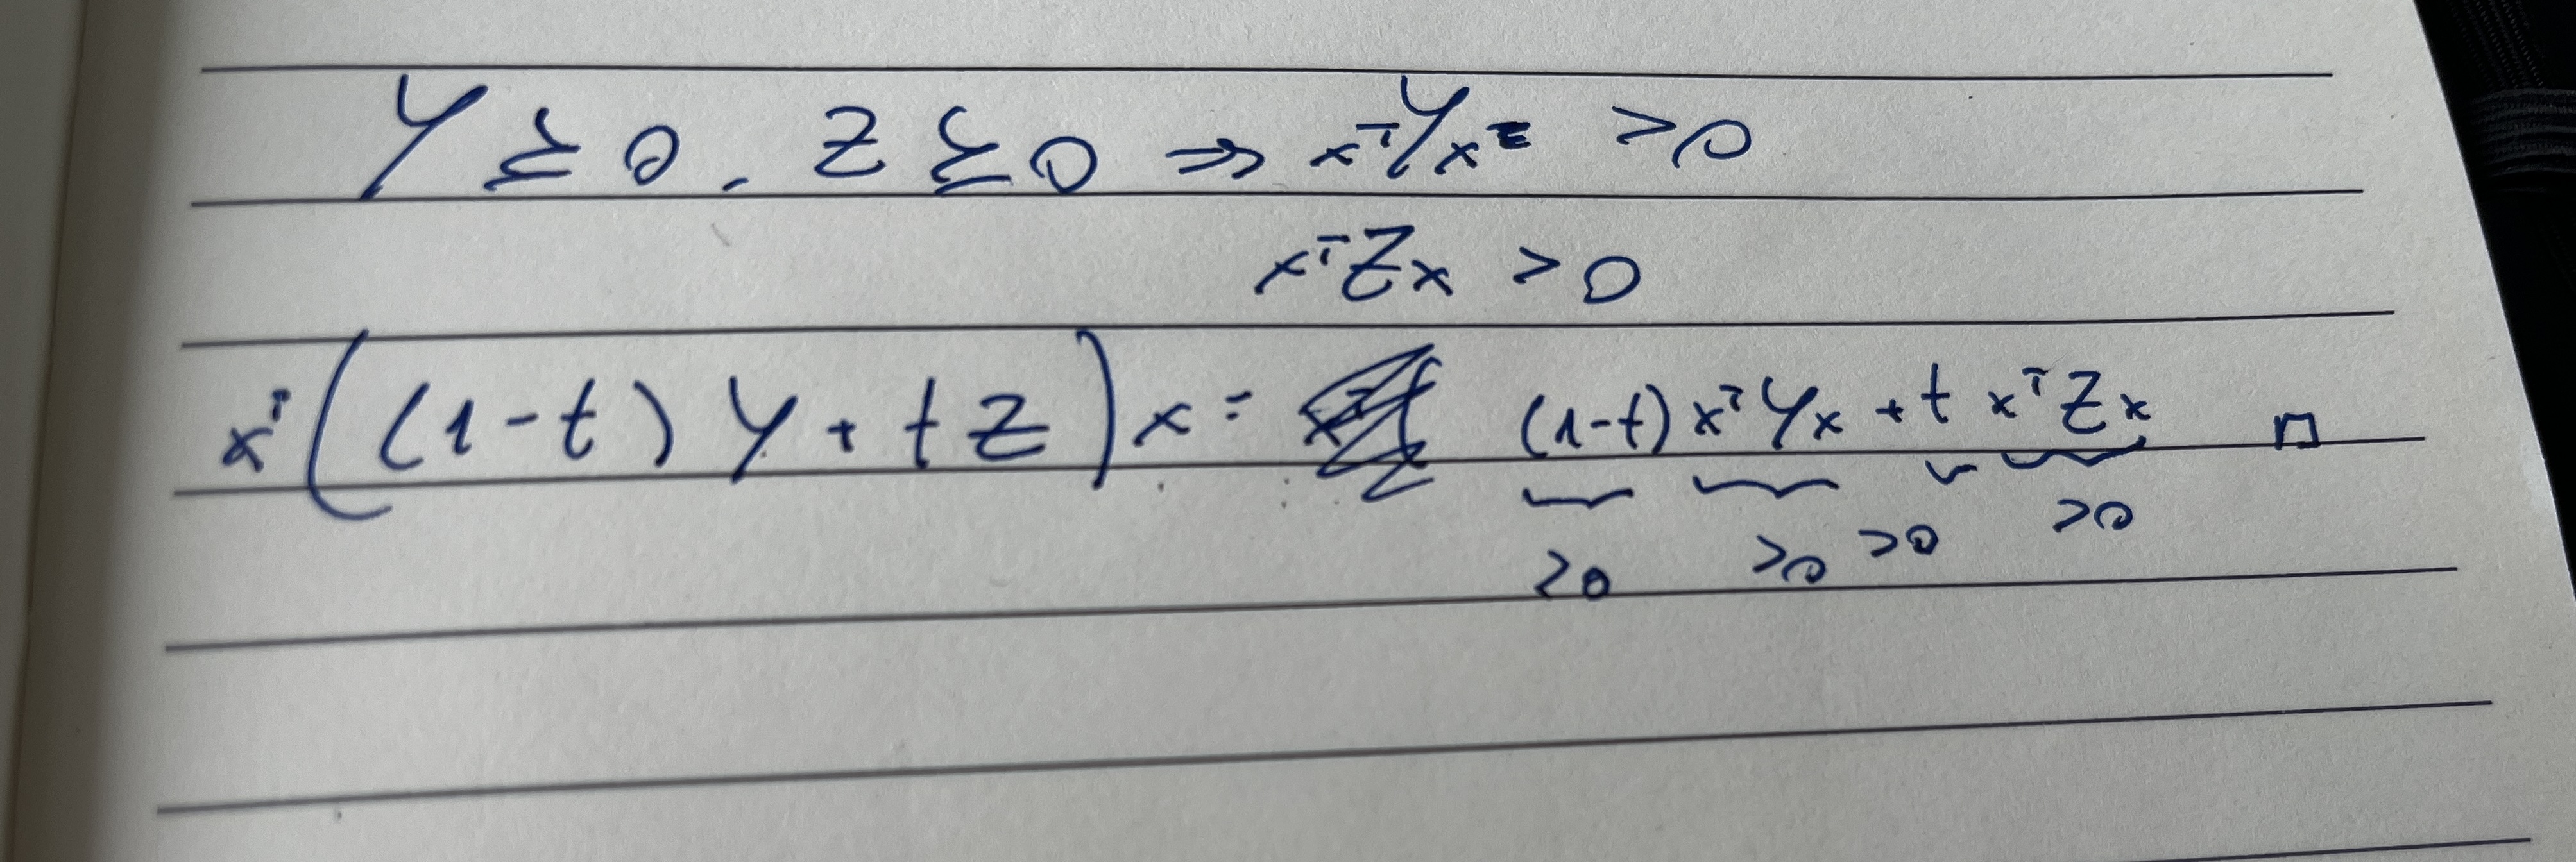 Y ⪰ 0, Z ⪰ 0 ⇒ xᵀYx > 0
xᵀZx > 0
xᵀ((1-t)Y + tZ)x = (1-t) xᵀYx + t xᵀZx □
≥0 >0 >0 >0